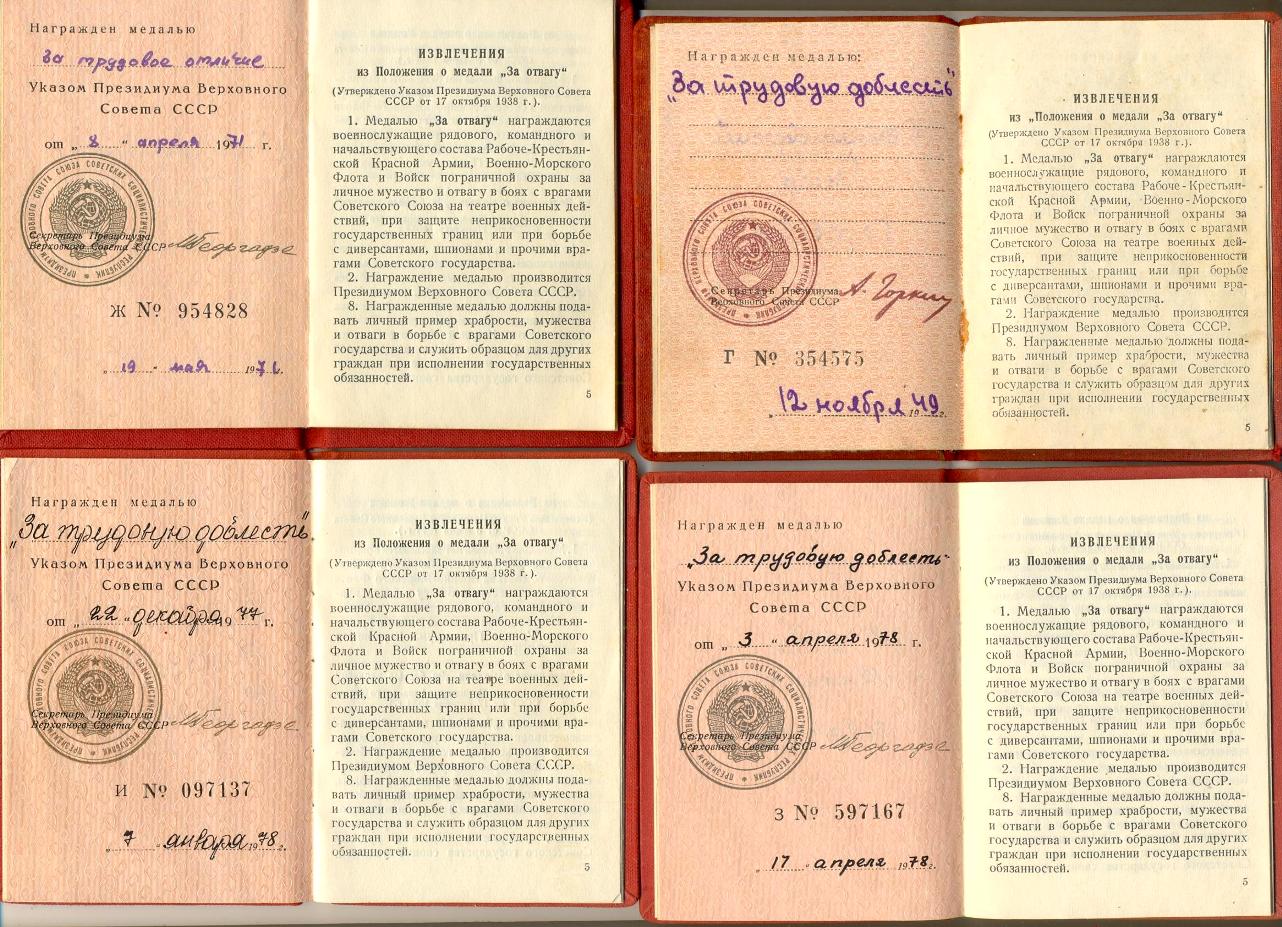 Награжден медалью
За трудовое отличие
Указом Президиума Верховного
Совета СССР
от „ 8 “ апреля 1971 г.
Секретарь Президиума
Верховного Совета СССР
Ж № 954828
„ 19 “ мая 1971.
ИЗВЛЕЧЕНИЯ
из Положения о медали „За отвагу“
(Утверждено Указом Президиума Верховного Совета
СССР от 17 октября 1938 г.).
1. Медалью „За отвагу“ награждаются
военнослужащие рядового, командного и
начальствующего состава Рабоче-Крестьян-
ской Красной Армии, Военно-Морского
Флота и Войск пограничной охраны за
личное мужество и отвагу в боях с врагами
Советского Союза на театре военных дей-
ствий, при защите неприкосновенности
государственных границ или при борьбе
с диверсантами, шпионами и прочими вра-
гами Советского государства.
2. Награждение медалью производится
Президиумом Верховного Совета СССР.
8. Награжденные медалью должны пода-
вать личный пример храбрости, мужества
и отваги в борьбе с врагами Советского
государства и служить образцом для других
граждан при исполнении государственных
обязанностей.
5
Награжден медалью:
„За трудовую доблесть“
Секретарь Президиума
Верховного Совета СССР
А. Горкин
Г № 354575
„ 12 ноября 1949 г.
ИЗВЛЕЧЕНИЯ
из „Положения о медали „За отвагу“
(Утверждено Указом Президиума Верховного Совета
СССР от 17 октября 1938 г.).
1. Медалью „За отвагу“ награждаются
военнослужащие рядового, командного и
начальствующего состава Рабоче-Крестьян-
ской Красной Армии, Военно-Морского
Флота и Войск пограничной охраны за
личное мужество и отвагу в боях с врагами
Советского Союза на театре военных дей-
ствий, при защите неприкосновенности
государственных границ или при борьбе
с диверсантами, шпионами и прочими вра-
гами Советского государства.
2. Награждение медалью производится
Президиумом Верховного Совета СССР.
8. Награжденные медалью должны пода-
вать личный пример храбрости, мужества
и отваги в борьбе с врагами Советского
государства и служить образцом для других
граждан при исполнении государственных
обязанностей.
5
Награжден медалью
„За трудовую доблесть“
Указом Президиума Верховного
Совета СССР
от „ 22 “ декабря 1977 г.
Секретарь Президиума
Верховного Совета СССР
И № 097137
„ 7 “ января 1978 г.
ИЗВЛЕЧЕНИЯ
из Положения о медали „За отвагу“
(Утверждено Указом Президиума Верховного Совета
СССР от 17 октября 1938 г.).
1. Медалью „За отвагу“ награждаются
военнослужащие рядового, командного и
начальствующего состава Рабоче-Крестьян-
ской Красной Армии, Военно-Морского
Флота и Войск пограничной охраны за
личное мужество и отвагу в боях с врагами
Советского Союза на театре военных дей-
ствий, при защите неприкосновенности
государственных границ или при борьбе
с диверсантами, шпионами и прочими вра-
гами Советского государства.
2. Награждение медалью производится
Президиумом Верховного Совета СССР.
8. Награжденные медалью должны пода-
вать личный пример храбрости, мужества
и отваги в борьбе с врагами Советского
государства и служить образцом для других
граждан при исполнении государственных
обязанностей.
5
Награжден медалью
„За трудовую доблесть“
Указом Президиума Верховного
Совета СССР
от „ 3 “ апреля 1978 г.
Секретарь Президиума
Верховного Совета СССР
З № 597167
„ 17 “ апреля 1978 г.
ИЗВЛЕЧЕНИЯ
из Положения о медали „За отвагу“
(Утверждено Указом Президиума Верховного Совета
СССР от 17 октября 1938 г.).
1. Медалью „За отвагу“ награждаются
военнослужащие рядового, командного и
начальствующего состава Рабоче-Крестьян-
ской Красной Армии, Военно-Морского
Флота и Войск пограничной охраны за
личное мужество и отвагу в боях с врагами
Советского Союза на театре военных дей-
ствий, при защите неприкосновенности
государственных границ или при борьбе
с диверсантами, шпионами и прочими вра-
гами Советского государства.
2. Награждение медалью производится
Президиумом Верховного Совета СССР.
8. Награжденные медалью должны пода-
вать личный пример храбрости, мужества
и отваги в борьбе с врагами Советского
государства и служить образцом для других
граждан при исполнении государственных
обязанностей.
5